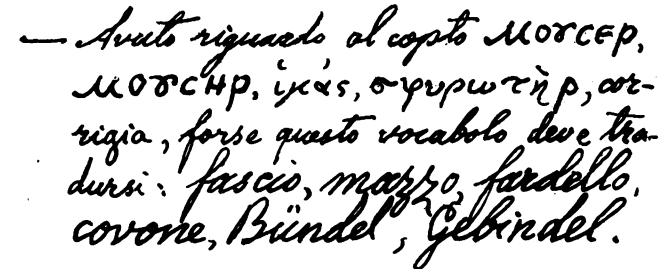 — Avuto riguardo al copto ⲙⲟⲩⲥⲉⲣ,
ⲙⲟⲩⲥⲏⲣ, ἱμάς, σφυρωτὴρ, cor-
rigia, forse questo vocabolo deve tra-
dursi: fascio, mazzo, fardello,
covone, Bündel, Gebindel.